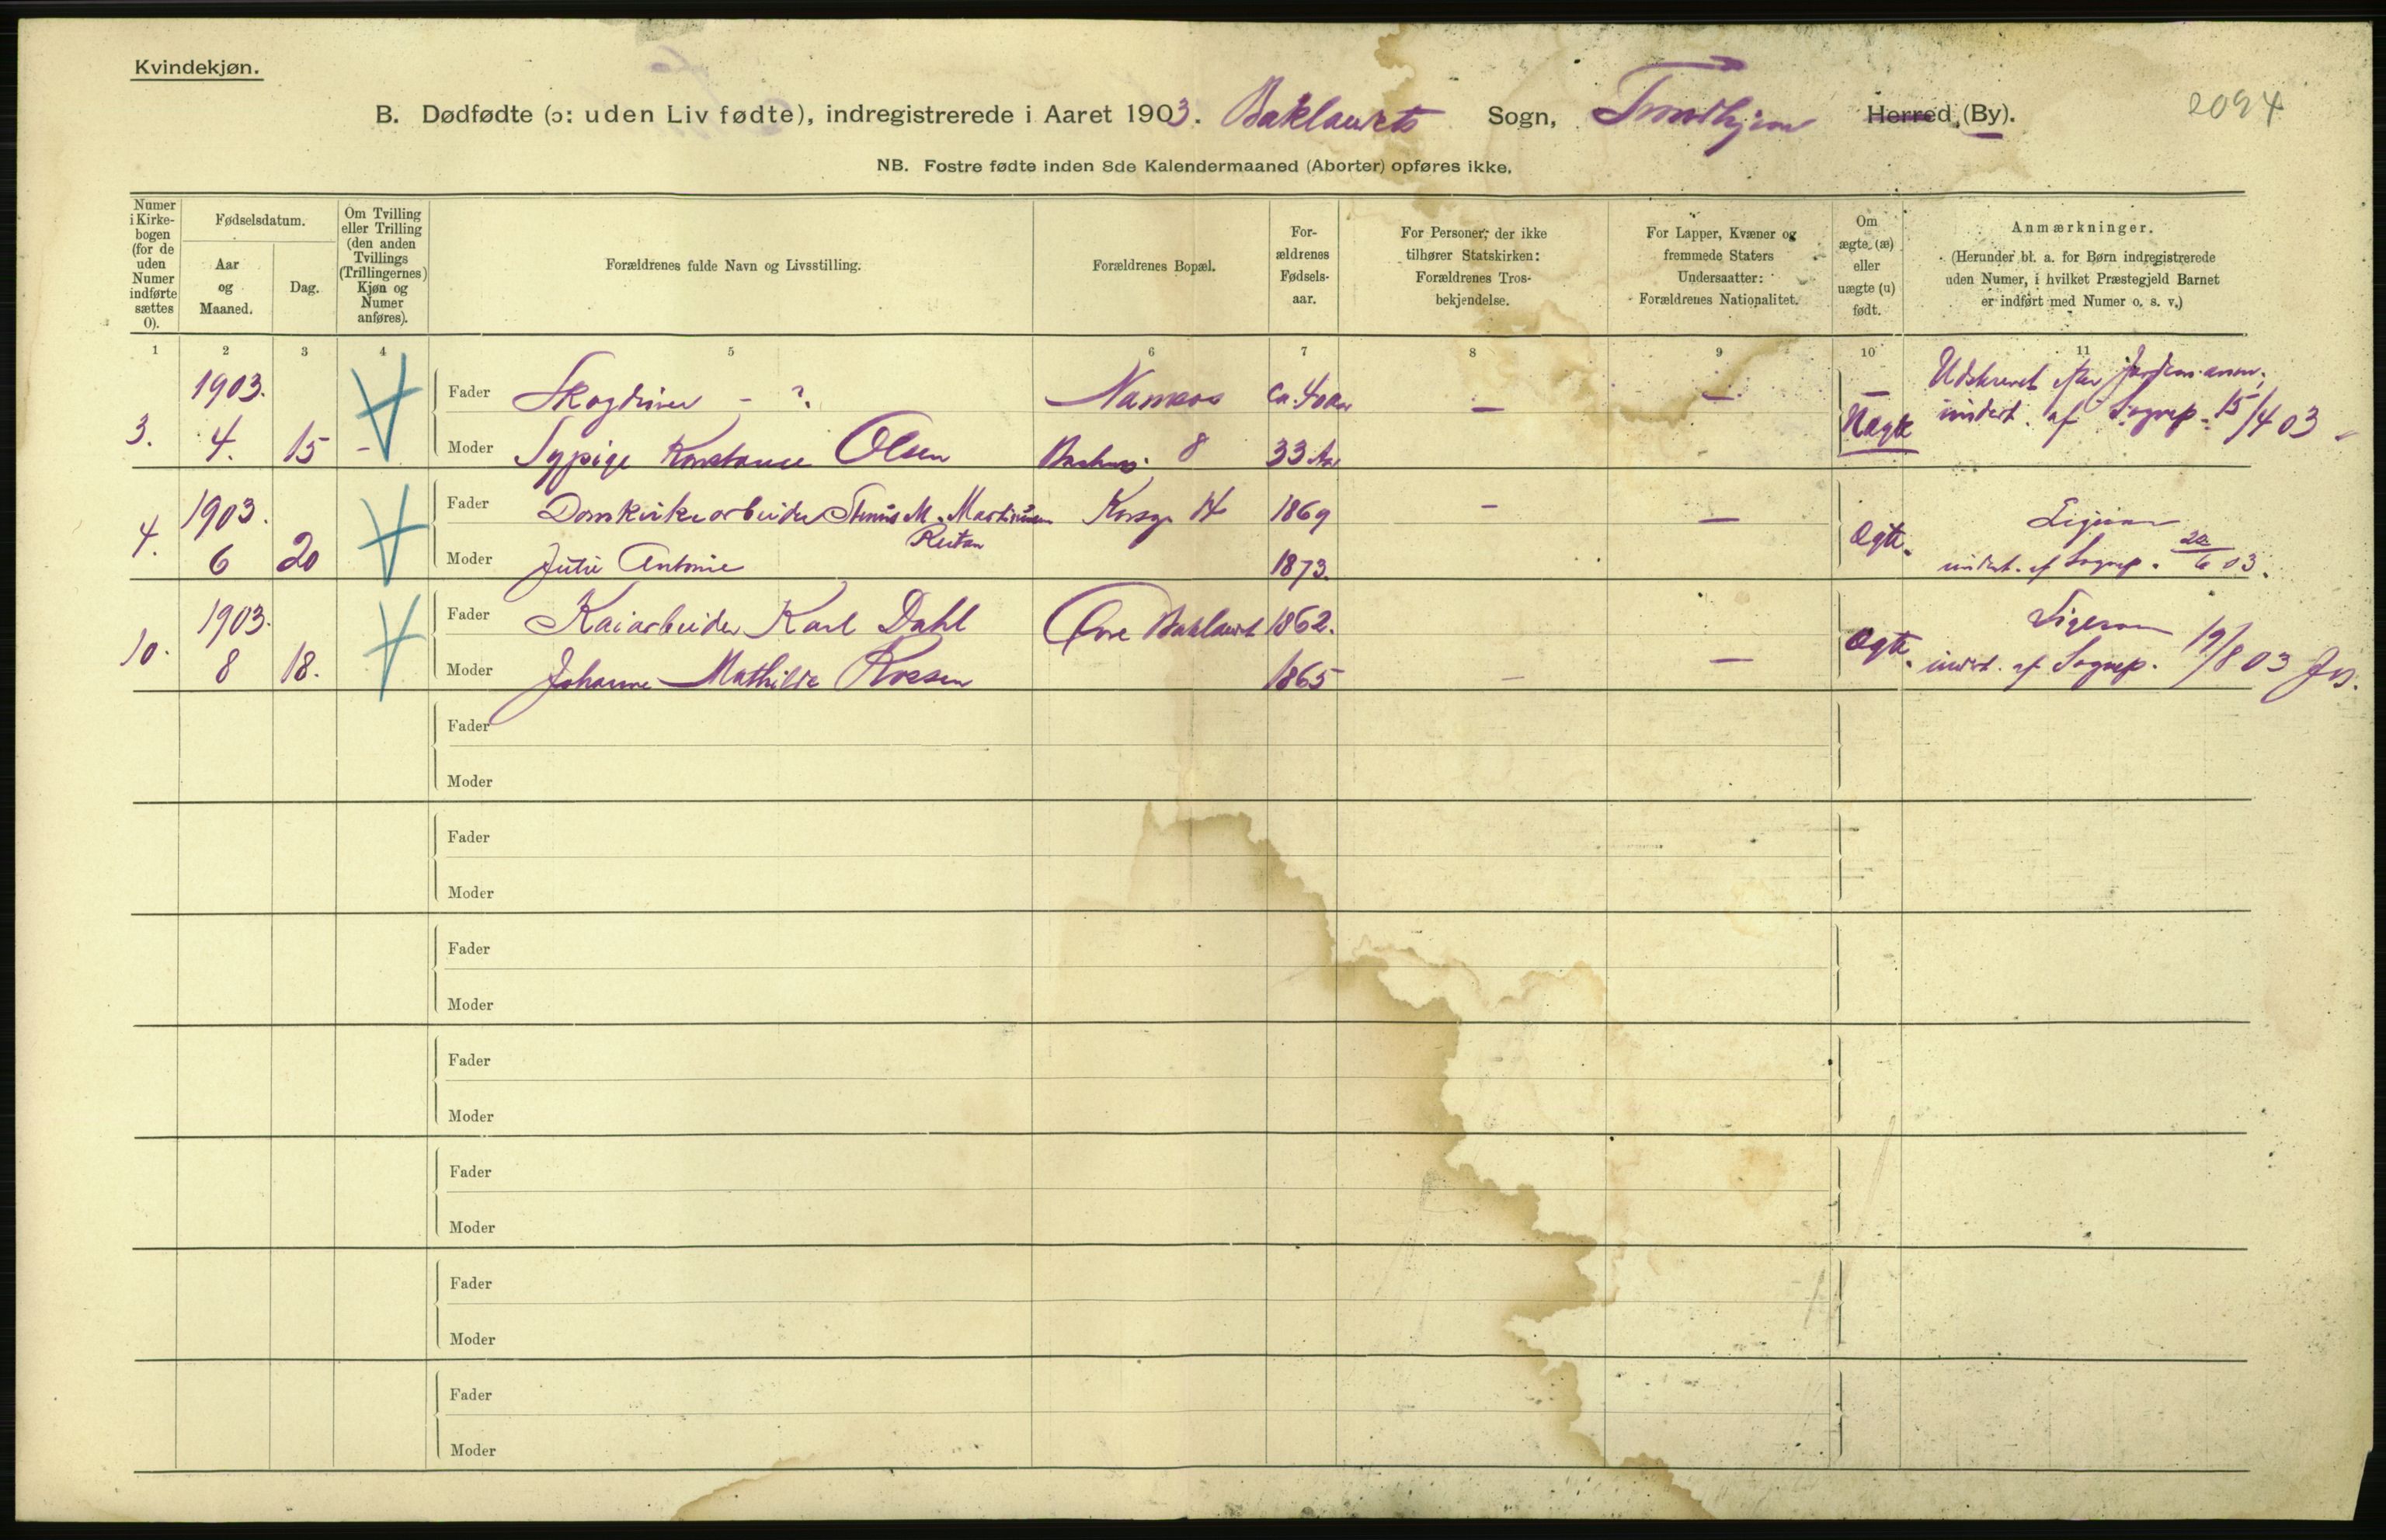 Kvindekjøn.
B. Dødfødte (ɔ: uden Liv fødte), indregistrerede i Aaret 1903. Baklandets Sogn, Trondhjem Herred (By).
2094
NB. Fostre fødte inden 8de Kalendermaaned (Aborter) opføres ikke.
Numer i Kirkebogen (for de uden Numer indførte sættes 0).
Fødselsdatum.
Aar og Maaned.
Dag.
Om Tvilling eller Trilling (den anden Tvillings (Trillingernes) Kjøn og Numer anføres).
Forældrenes fulde Navn og Livsstilling.
Forældrenes Bopæl.
Forældrenes Fødselsaar.
For Personer, der ikke tilhører Statskirken: Forældrenes Trosbekjendelse.
For Lapper, Kvæner og fremmede Staters Undersaatter: Forældrenes Nationalitet.
Om ægte (æ) eller uægte (u) født.
Anmærkninger.
(Herunder bl. a. for Børn indregistrerede uden Numer, i hvilket Præstegjeld Barnet er indført med Numer o. s. v.)
1 2 3 4 5 6 7 8 9 10 11
3. 1903. 4. 15 -
Fader - ? Namsos ca. 40 Aar — —
Moder Sypige Konstance Olsen 8 33 Aar
Uægte
Udskrevet efter
indert. af Sognep. 15/4 03
4. 1903. 6 20
Fader Domkirkearbeider M. Martinusen Reitan Korsg. 14 1869 — —
Moder Antonie 1873.
Ægte.
Ligesaa
indert. af Sognep. 20/6 03.
10. 1903. 8 18.
Fader Kaiarbeider Karl Dahl Øvre Baklandet 1862.
Moder Johanne Mathilde 1865 — —
Ægte.
Ligesaa
indert. af Sognep. 19/8 03
Fader
Moder
Fader
Moder
Fader
Moder
Fader
Moder
Fader
Moder
Fader
Moder
Fader
Moder